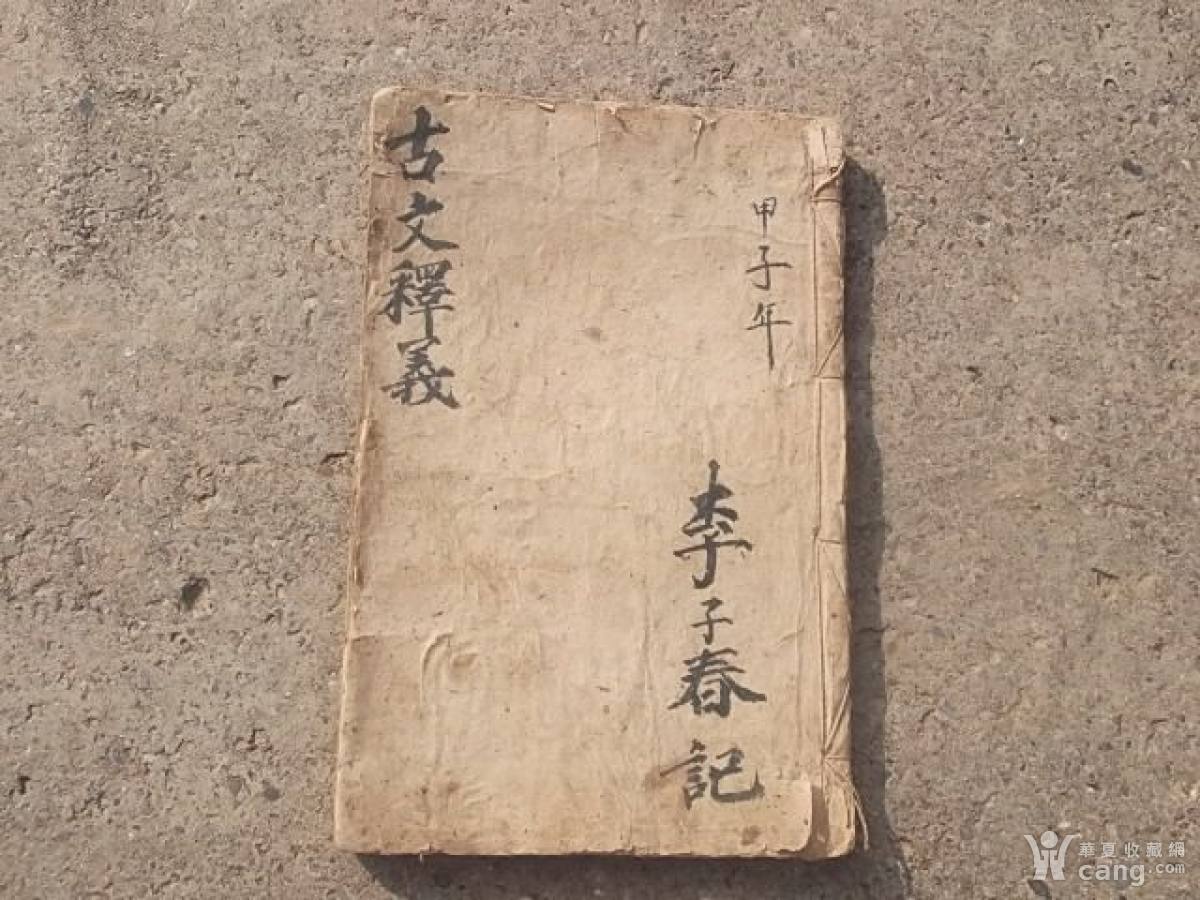 甲子年
李子春記
古文釋義
華夏收藏網
cang.com